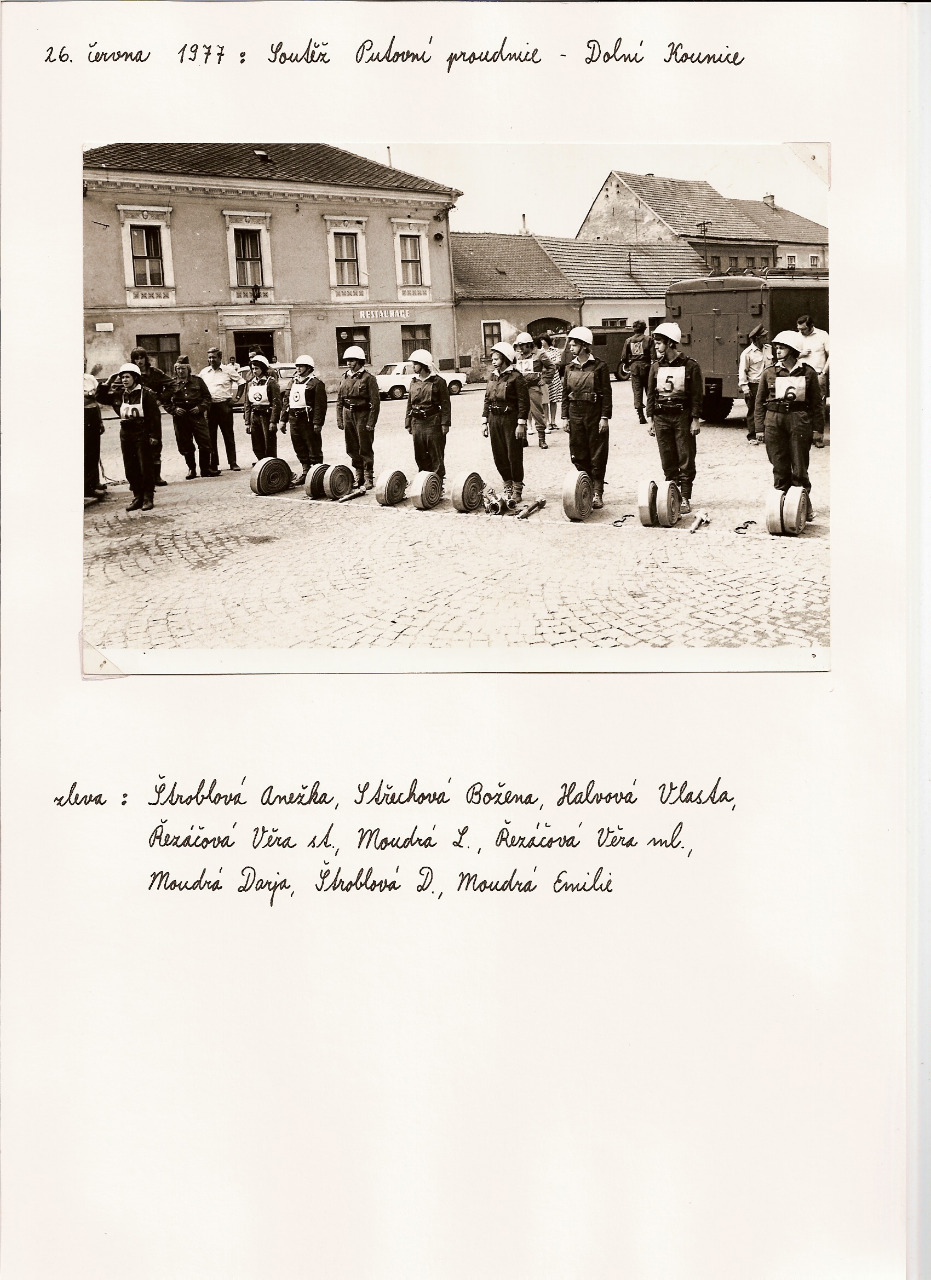 26. června 1977 : Soutěž Putovní proudnice - Dolní Kounice
RESTAURACE
10
5
6
zleva : Štroblová Anežka, Střechová Božena, Halvová Vlasta,
Řezáčová Věra st., Moudrá L., Řezáčová Věra ml.,
Moudrá Darja, Štroblová D., Moudrá Emilie